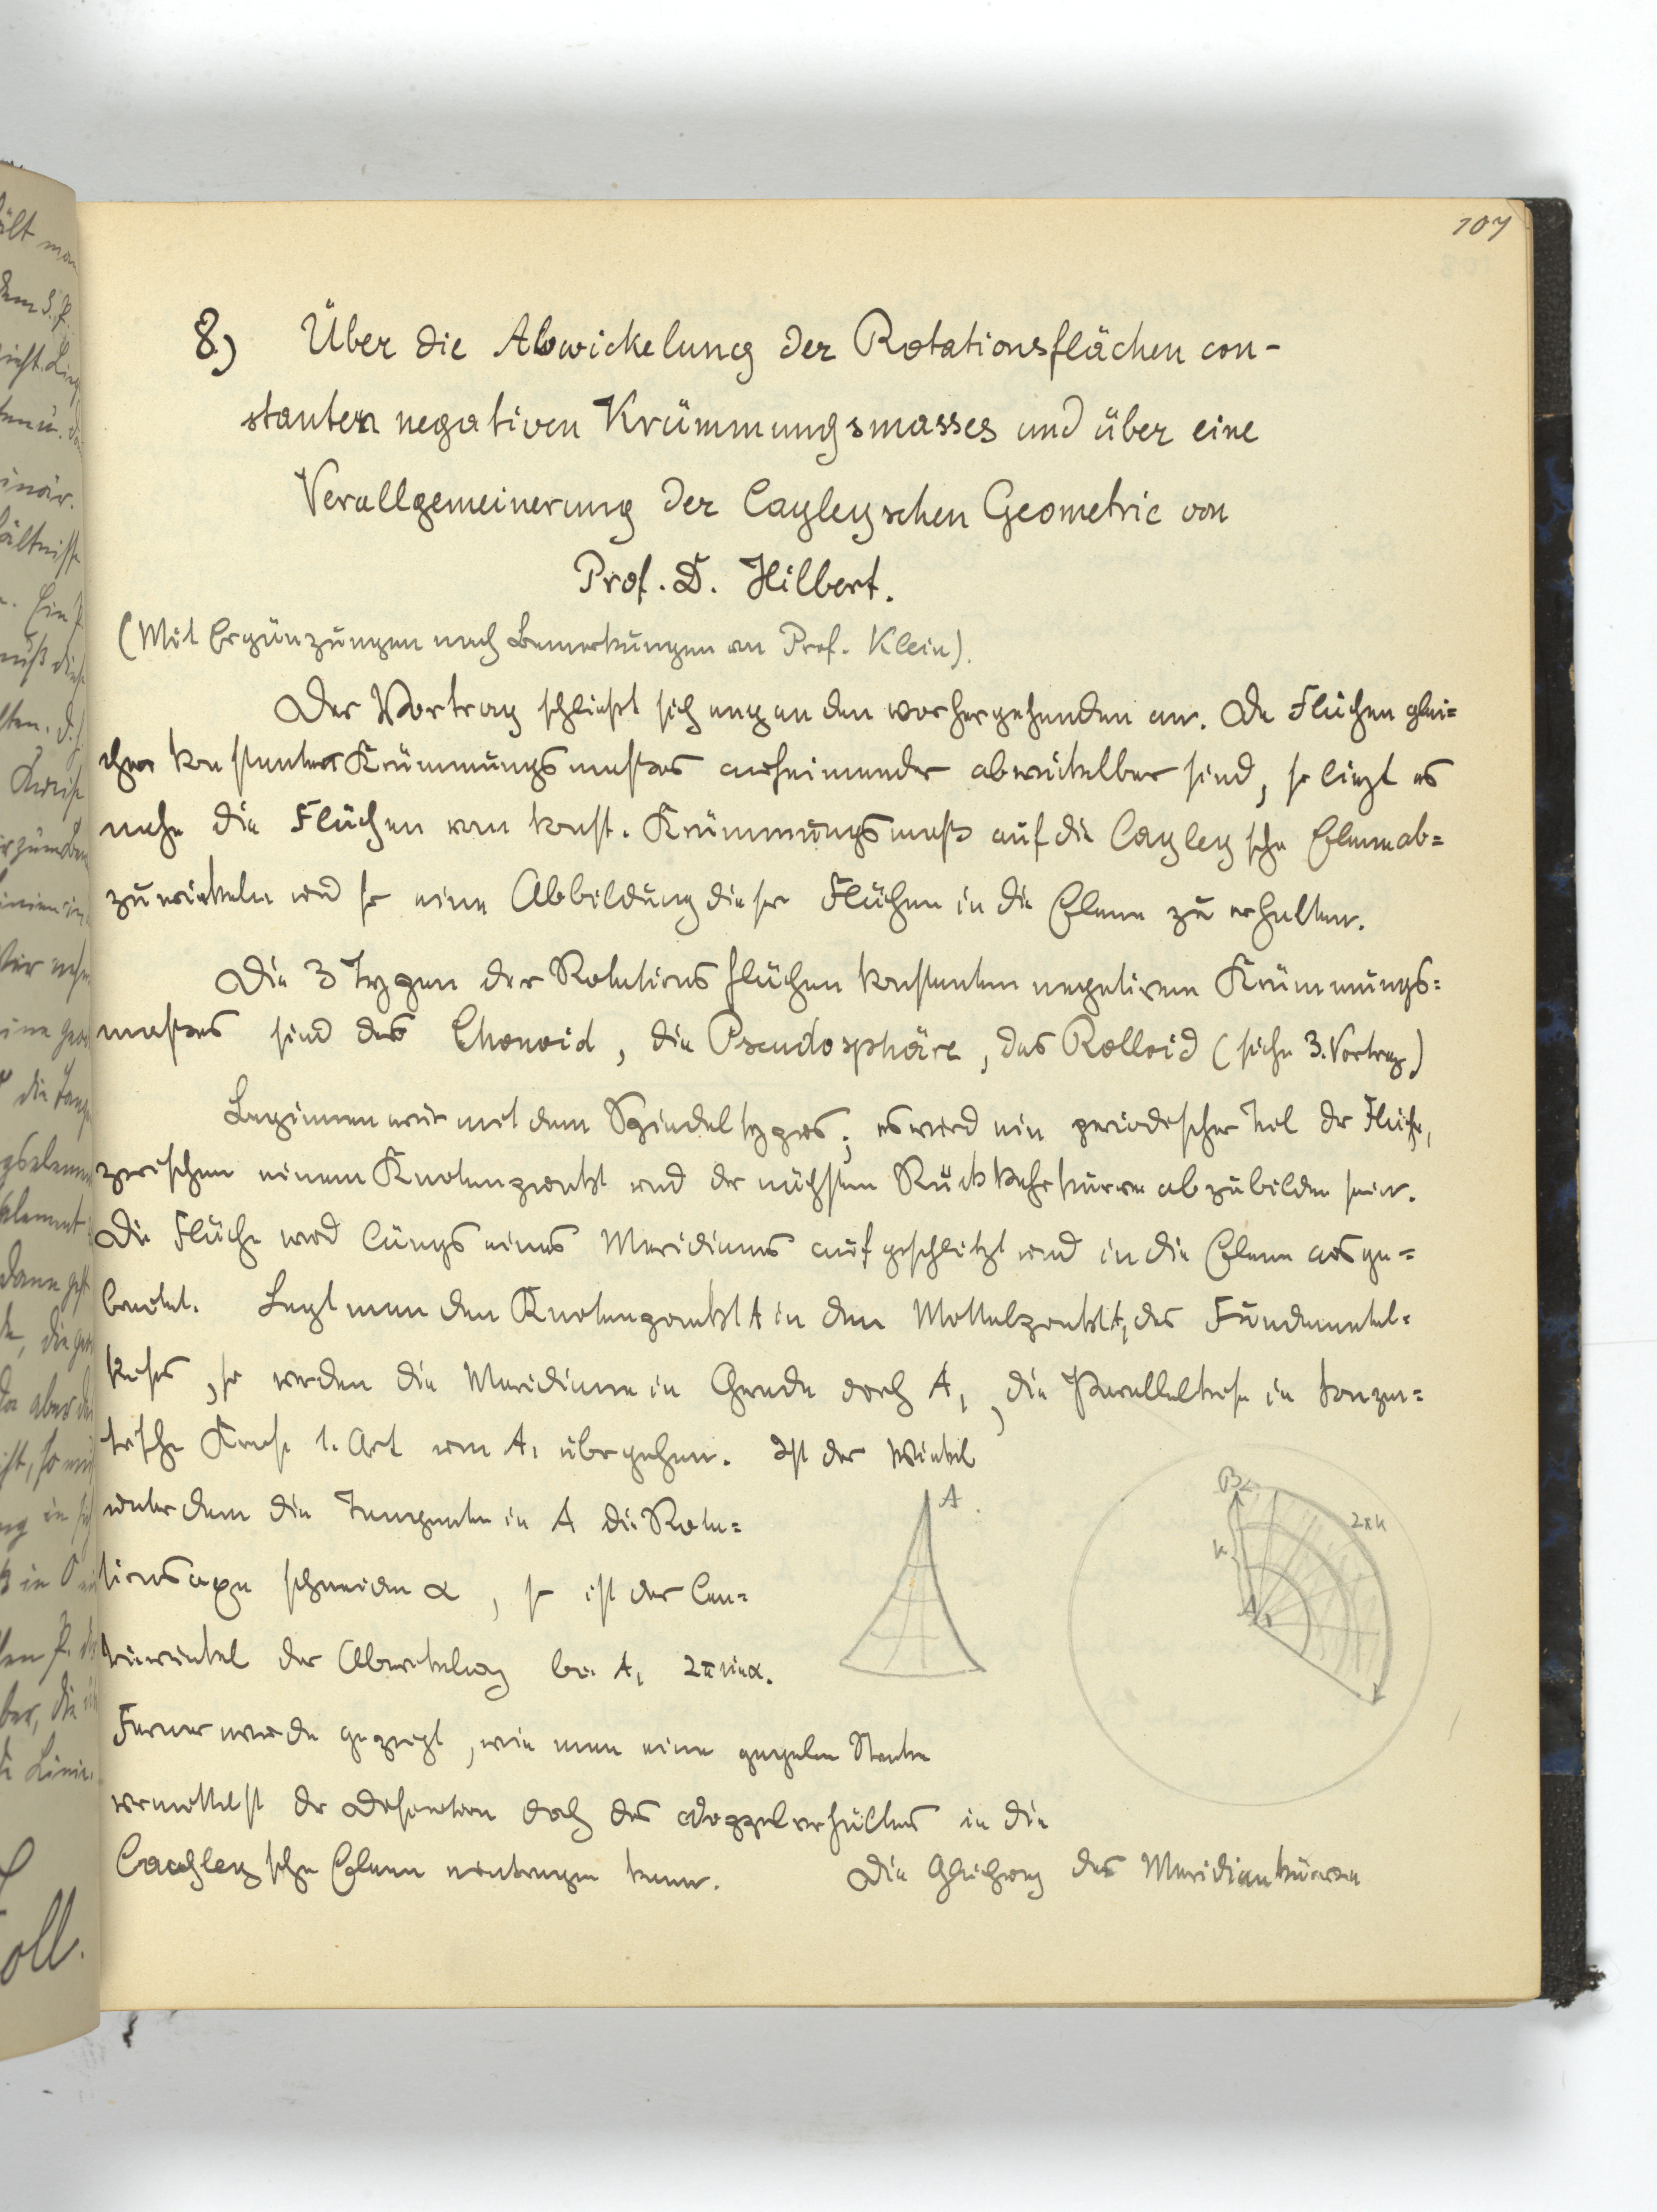 107
8) Über die Abwickelung der Rotationsflächen con-
stanten negativen Krümmungsmasses und über eine
Verallgemeinerung der Cayleyschen Geometrie von
Prof. D. Hilbert.
(Mit Ergänzungen nach Bemerkungen von Prof. Klein).
Der Vortrag schließt sich eng an den vorhergehenden an. Da Flächen glei=
cher konstanter Krümmungsmaßes aufeinander abwickelbar sind, so liegt es
nahe die Flächen von konst. Krümmungsmaß auf die Cayleysche Ebene ab=
zuwickeln und so eine Abbildung dieser Flächen in die Ebene zu erhalten.
Die 3 Typen der Rotationsflächen konstanten negativen Krümmungs=
maßes sind das Konoid, die Pseudosphäre, das Rolloid (siehe 3. Vortrag)
Beginnen wir mit dem Spindeltypus; es wird ein periodischer Teil der Fläche,
zwischen einem Knotenpunkt und der nächsten Rückkehrkurve abzubilden sein.
Die Fläche wird längs eines Meridians aufgeschlitzt und in die Ebene ausge=
breitet. Legt man den Knotenpunkt A in den Mittelpunkt A₁ des Fundamental=
kreises, so werden die Meridiane in Gerade durch A₁, die Parallelkreise in konzen=
trische Kreise 1. Art um A₁ übergehen. Ist der Winkel
unter dem die Tangente in A die Rota=
tionsaxe schneidet α, so ist der Cen=
triwinkel der Abwickelung bei A₁ 2π sin α.
Ferner wurde gezeigt, wie man eine gegebene Strecke
vermittelst der Definition durch das Doppelverhältnis in die
Cayleysche Ebene eintragen kann. Die Gleichung der Meridiankurven
A
A₁